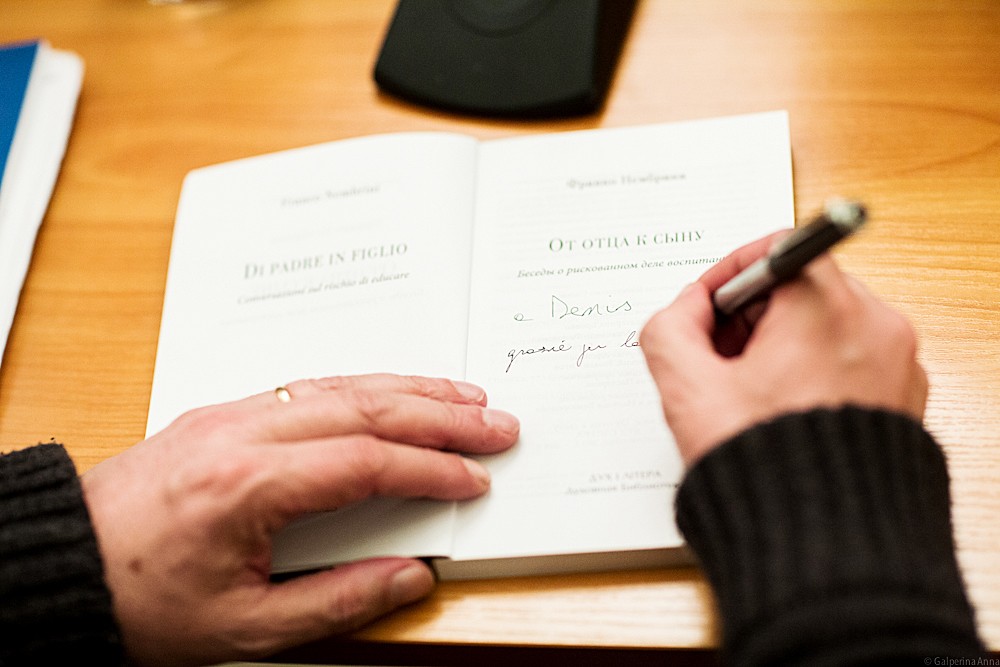 Franco Nembrini
DI PADRE IN FIGLIO
Conversazioni sul rischio di educare
Франко Нембрини
ОТ ОТЦА К СЫНУ
Беседы о рискованном деле воспитани
a Denis
grazie per la
ДУХ І ЛІТЕРА
© Galperina Anna